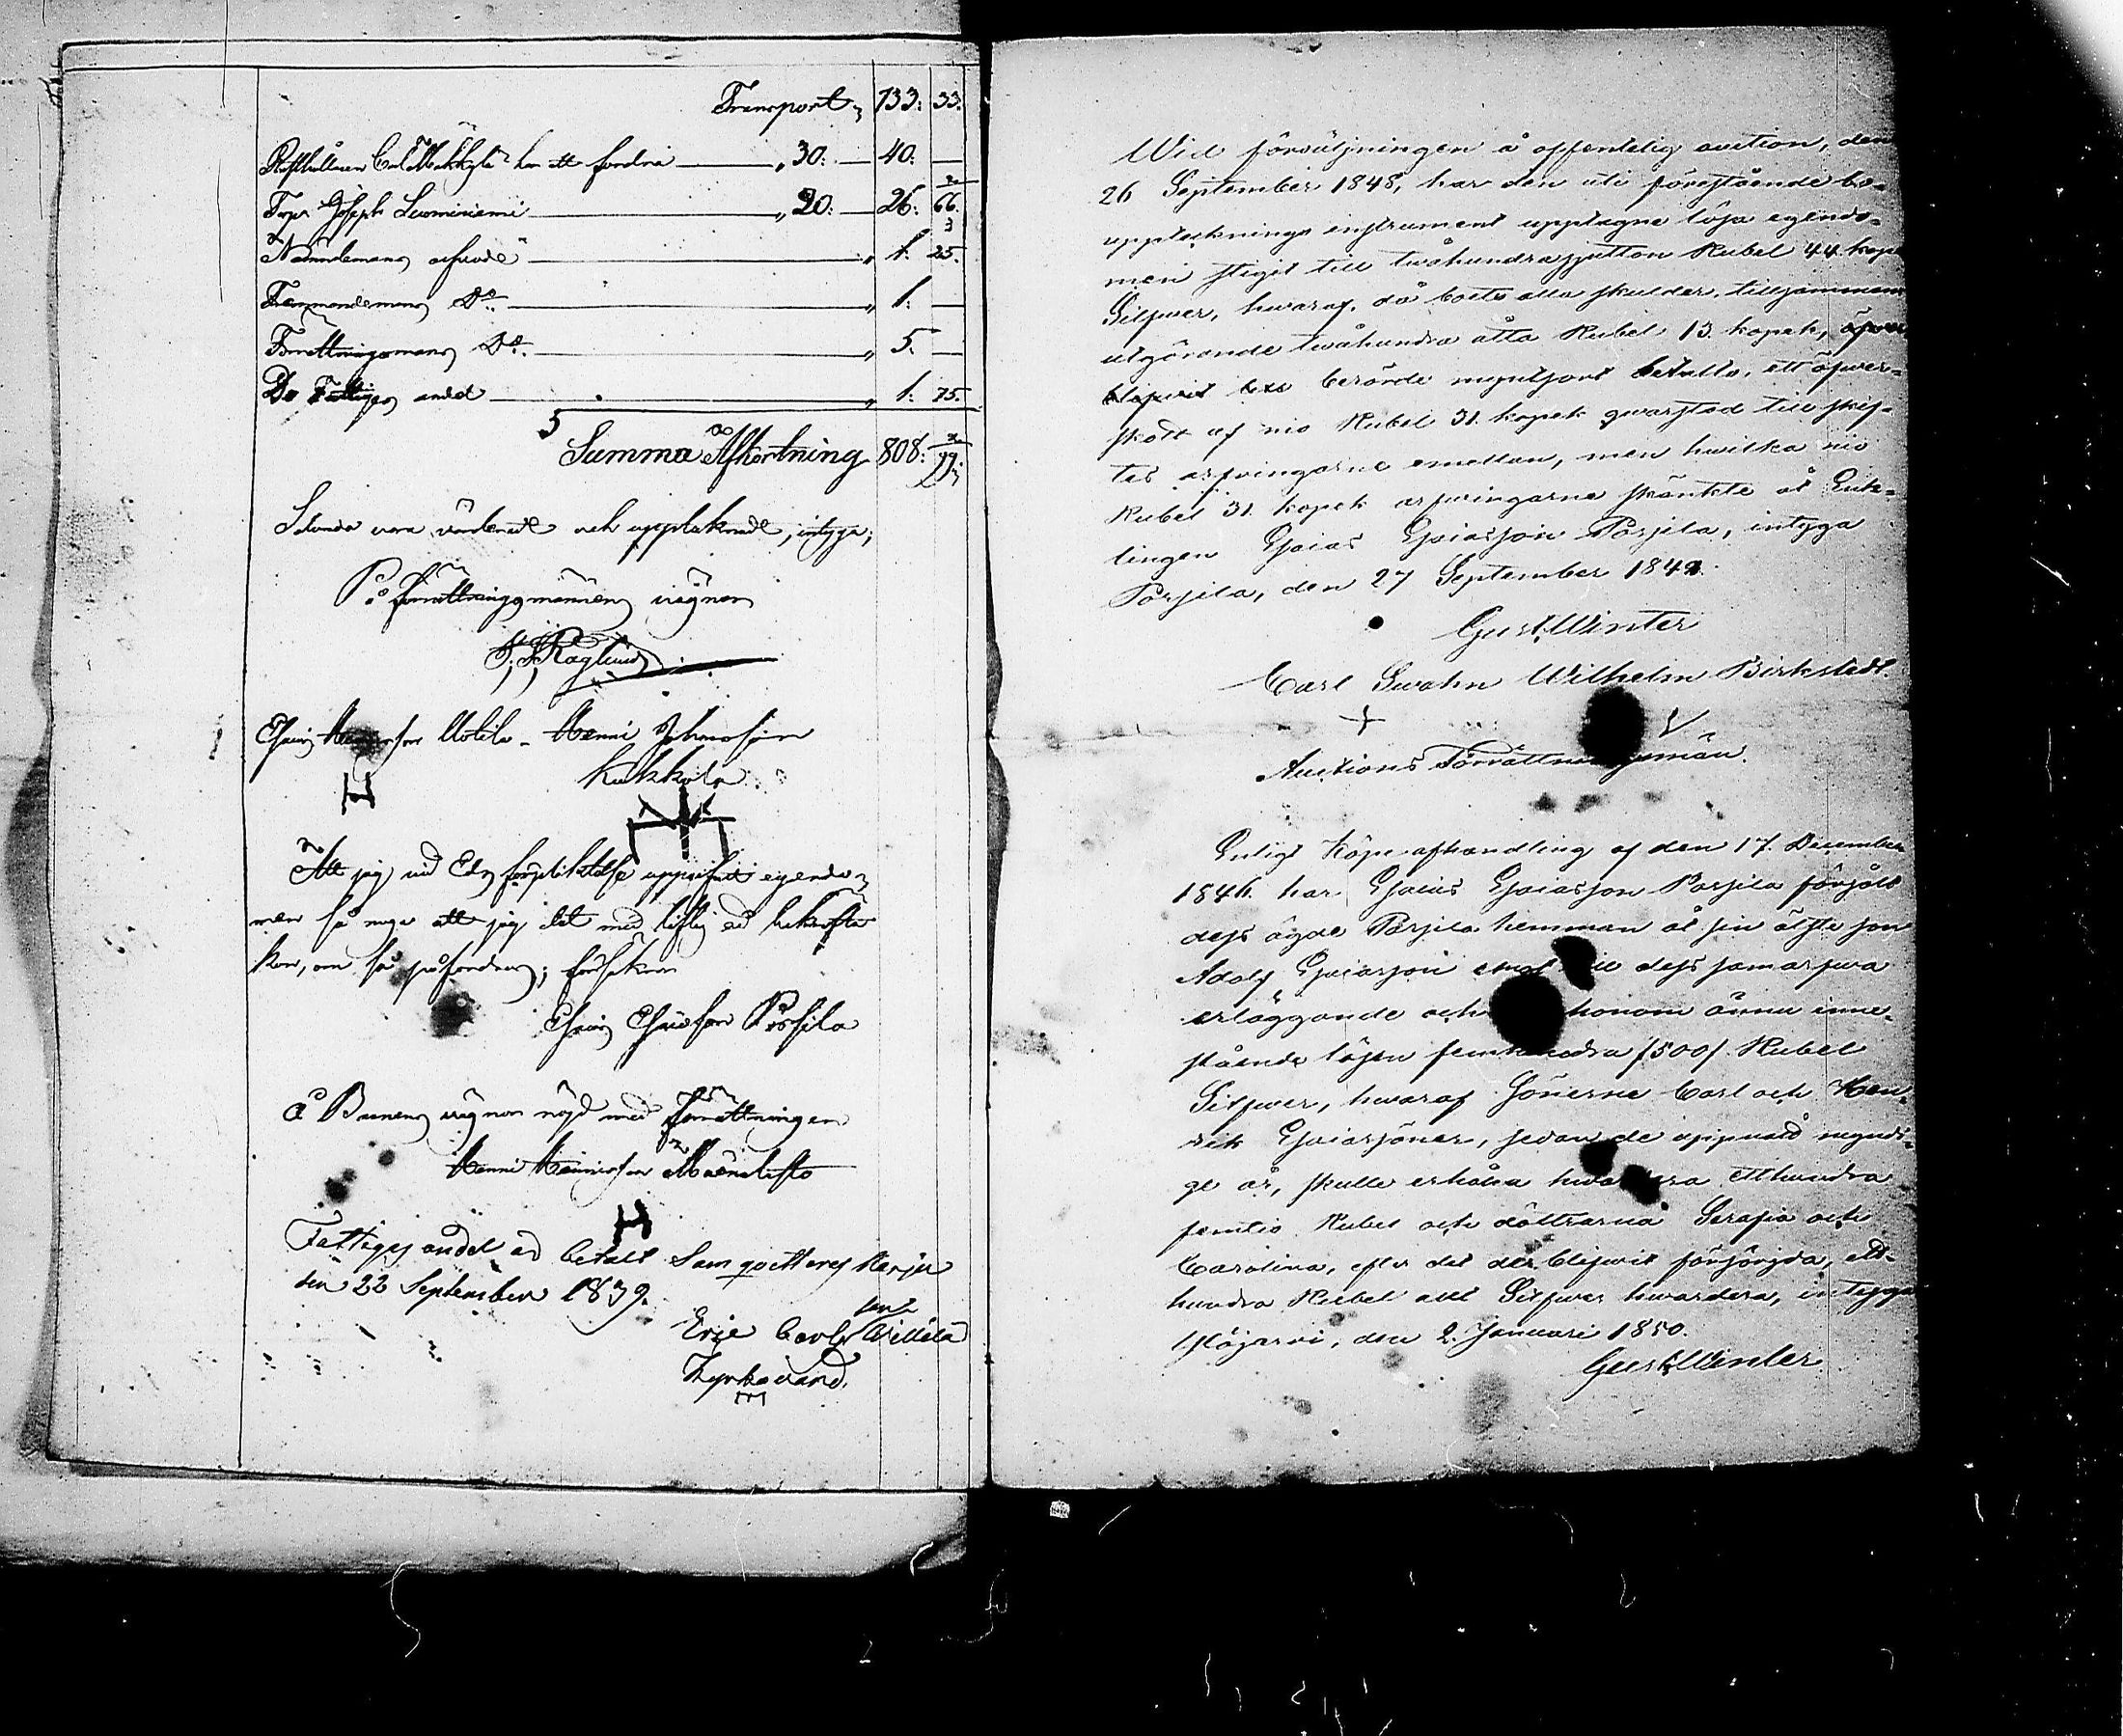 Transport, 733: 33.
har att fordra „ 30: — 40: —
Joseph „ 20: — 26: 66. 2/3
Nämndemans arfvode „ 1: 25.
Do „ 1: —
Förrättningsmans Do „ 5. —
De Fattigas andel „ 1: 75.
Summa Afkortning 808: 99.
vara värderadt och upptecknadt, intyga;
På förrättningsmännens vägnar
Uotila - Henni Johansson
Kukkola
Att jag vid Eds förpliktelse uppgifvit egendo-
men så noga att jag det med liflig ed bekräfta
kan, om så påfordras; försäkrar
Esaias Esaiasson Pärsilä
å Barnens vägnar nöjd med förrättningen
Henni
Fattiges andel ad betalt Som qvitteras Karju
den 22 September 1839.
Eric Carls son Willilä
Kyrkovärd.
Wid försäljningen å offentelig auction, den
26 September 1848, har den uti förestående bo-
upptecknings instrument upptagne lösa egendo-
men stigit till twåhundrasjutton Rubel 44. kopek
Silfwer, hwaraf, då boets alla skulder, tillsammans
utgörande twåhundra åtta Rubel 13. kopek,
blifwit berörde myntsort betalte, ett öfwer-
skott af nio Rubel 31. kopek qwarstod till skif-
tes arfwingarne emellan, men hwilka nio
Rubel 31. kopek arfwingarne skänkte åt Enk-
lingen Esaias Esaiasson Pärsilä, intyga
Pärsilä, den 27 September 1848.
Gust. Winter
Carl Swahn Wilhelm Birkstedt.
Auctions Förrättningsmän.
Enligt Köpe afhandling af den 17. December
1846. har Esaias Esaiasson Pärsilä försålt
dess ägde Pärsilä hemman åt sin äldste son
Adolf Esaiasson emot dess samarfwa
erläggande och honom ännu inne-
stående lösen femhundra /500/ Rubel
Silfwer, hwaraf Sönerne Carl och Hen-
rik Esaiassöner, sedan de uppnådt myndi-
ge år, skulle erhålla hwardera etthundra
femtio Rubel och döttrarna Serafia och
Carolina, efter det de blifwit försörjda, ett-
hundra Rubel allt Silfwer hwardera, intygga
Ylöjärvi, den 2. Januari 1850.
Gust. Winter